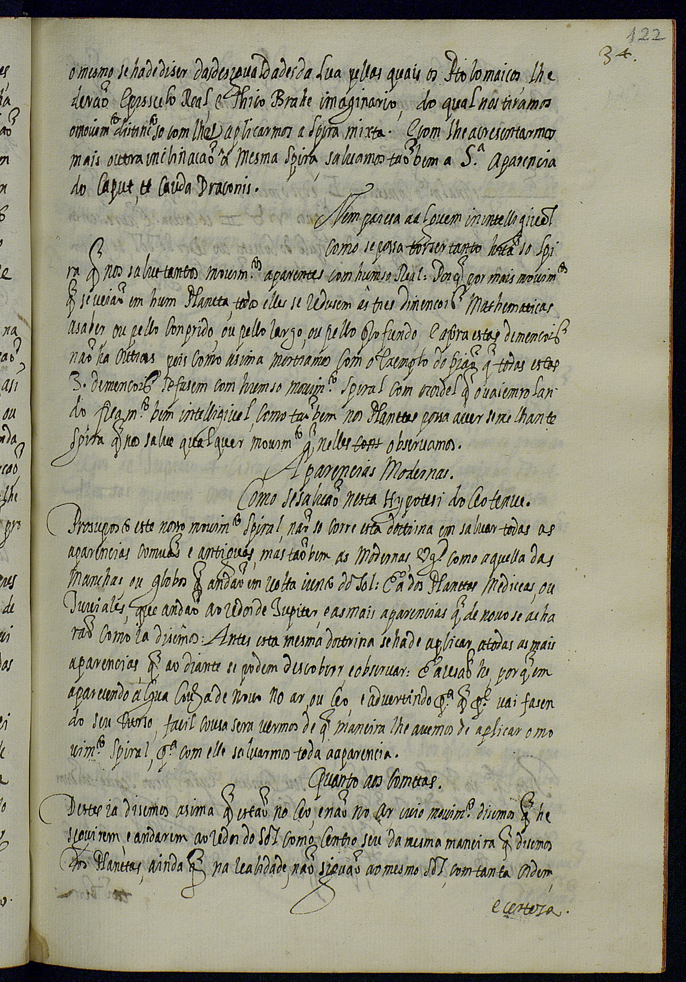 122
34.
o mesmo se ha de diser das desigualdades da Lua pellas quais os Ptolomaicos lhe
derão Epposcelo Real, e Thico Brahe imaginario, do qual nos tiramos
o movim.to distincto so com lhe aplicarmos a spira mixta. E com lhe acresentarmos
mais outra inclinacão á mesma spira, salvamos tão bem a S.ª Aparencia
do Caput, et Cauda Draconis.
Nem pareca a alguem inintelligivel
como se possa em tanto so spi
ra q̃ nos salve tantos movim.tos aparentes com hum so Real: Porq̃ por mais movim.tos
q̃ se vejão em hum Planeta, todos elles se redusem ás tres dimencois Mathematicas
a saber ou pello comprido, ou pello largo, ou pello profundo. E afora estas demencois
não ha outras pois como asima mostramos com o exemplo do q̃ todas estas
3. demencois se fasem com hum so movim.to spiral com
do fica m.to bem intelligivel, como tão bem nos Planetas possa aver semelhante
spira q̃ nos salve qualquer movim.to q̃ nelles observamos.
Aparencias Modernas.
Como se salvão nesta Hypotesi do Ceo tenue.
Presuposto este novo movim.to spiral, não so corre esta doutrina em salvar todas as
aparencias comuas e antiguas, mas tão bem as Modernas, Vg.ª como aquella das
Manchas ou globos q̃ andão em volta iunto do Sol: E a dos Planetas Mediceas, ou
Ioviales, que andão ao redor de Iupiter e as mais aparencias q̃ de novo se acha
rão como ia disemos: Antes esta mesma doctrina se hade aplicar a todas as mais
aparencias q̃ ao diante se podem descobrir e observar: E a resão he, porq̃ em
aparecendo algua Cousa de novo no ar, ou Ceo e advertindo p.ª q̃ p.te vai fasen
do seu curso, facil cousa sera vermos de q̃ maneira lhe avemos de aplicar o mo
vim.to spiral, p.ª com elle salvarmos toda a aparencia.
Quanto aos Cometas.
Destes ia disemos asima q̃ estão no Ceo, e não no Ar cuio movim.to disemos q̃ he
seguirem e andarem ao redor do Sol como Centro seu da mesma maneira q̃ disemos
dos Planetas, ainda q̃ na realidade não siguão ao mesmo Sol, com tanta ordem,
e certeza.